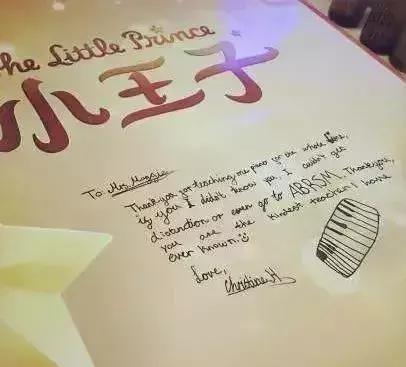 The Little Prince
小王子
To Mrs. Maggie
Thank you for teaching me piano for the whole time,
if you I didn't know you, I couldn't get
distinction or even go to ABRSM. Thank you,
you are the kindest teacher I have
ever known.
Love,
Christine H